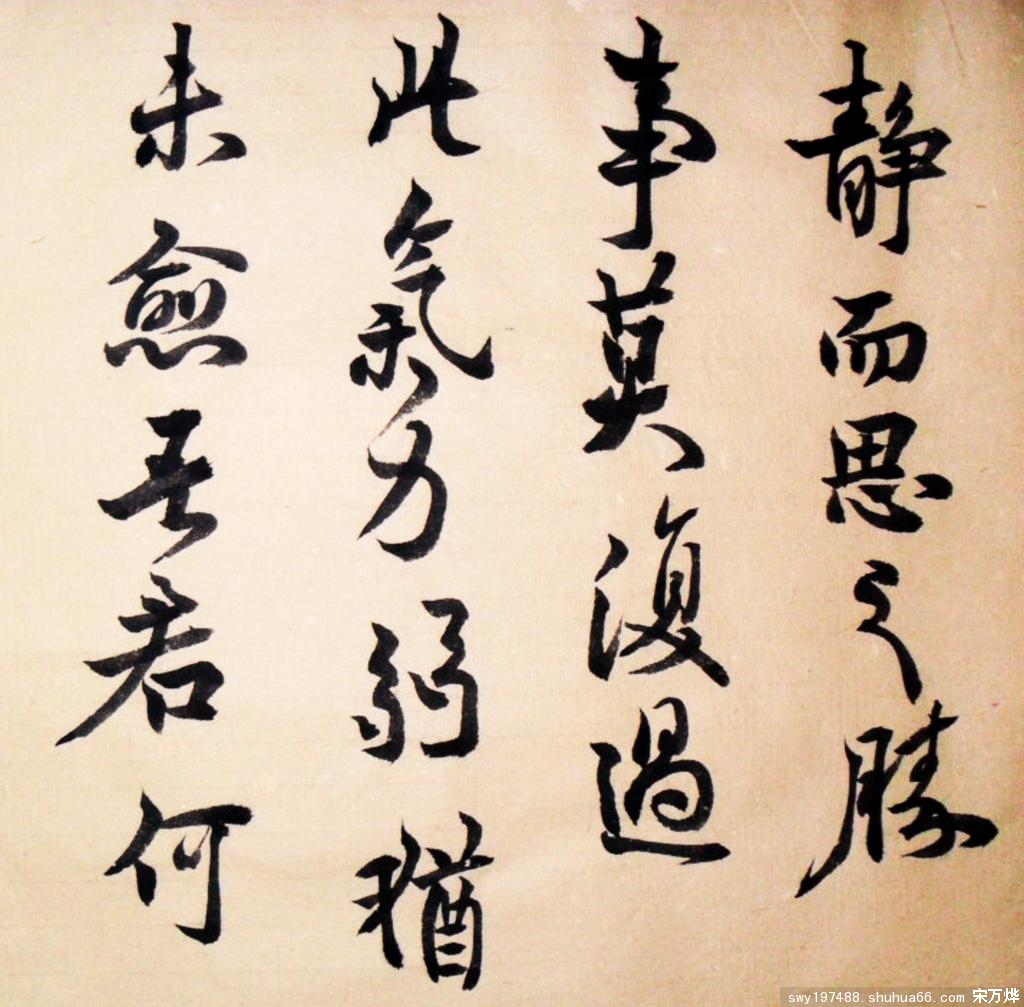 静而思之勝
事莫復過
此氣力弱猶
未愈吾君何
swy197488.shuhua66.com 宋万烨